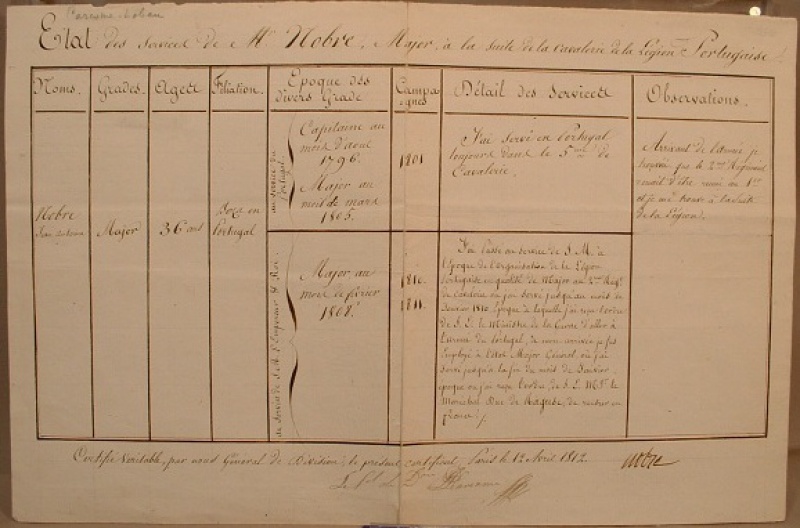 Etat des services de Mr. Nobre, Major, à la suite de la Cavalerie de la Légion Portugaise.
Noms.
Grades.
Agett
Filiation.
Epoque des
divers Grade
Campa-
ègnes
Détail des Servicett
Observations.
Nobre
Major
36 ans
en
Portugal
au service du
Portugal
Capitaine au
mois d'aout
1796.
Major au
mois de mars
1805.
1801
J'ai servi en Portugal
toujours dans le 5me de
Cavalerie.
Arrivant de l'armée je
que le 2me Régiment
venait d'être réuni au 1er
et je me trouve à la suite
de la Légion.
au service de S. M. l'Empereur & Roi.
Major au
mois de février
1808.
1810.
1811.
J'ai passé au service de S. M. à
l'époque de l'organisation de la Légion
Portugaise en qualité de Major au 2me Régt
de Cavalerie ou j'ai servi jusqu'au mois de
1810. époque à laquelle j'ai reçu l'ordre
de S. E. le Ministre de la Guerre d'aller à
l'armée de Portugal, à mon arrivée je fus
employé à l'état Major Général, ou j'ai
servi jusqu'à la fin du mois de Janvier,
époque ou j'ai reçu l'ordre, de S. E. Mgr. le
Maréchal Duc de Raguse, de rentrer en
France.
Certifié véritable, par nous Général de Division, le présent certificat, Paris le 12 Avril 1812.
Nobre